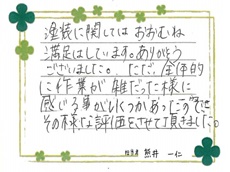 塗装に関しては おおむね
満足はしています。ありがとう
ございました。ただ、全体的
に作業が雑だった様に
感じる事がいくつかあったので
その様な評価をさせて頂きました。
担当者 熊井 一仁